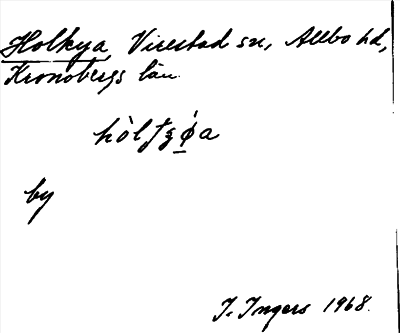 Holkya, Virestad sn, Allbo hd,
Kronobergs län.
by
I. Ingers 1968.